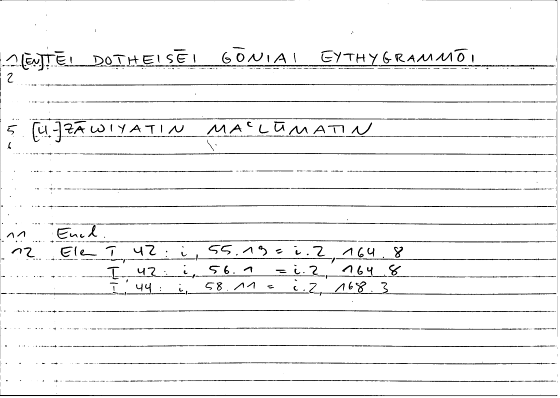 1 [EN] TĒI DOTHEISĒI GŌNIAI EYTHYGRAMMŌI
2
5 [li-] ZĀWIYATIN MAᶜLŪMATIN
6
11 Eucl.
12 Elem I, 42 : i, 55.19 = i.2, 164.8
I, 42 : i, 56.1 = i.2, 164.8
I, 44 : i, 58.11 = i.2, 168.3